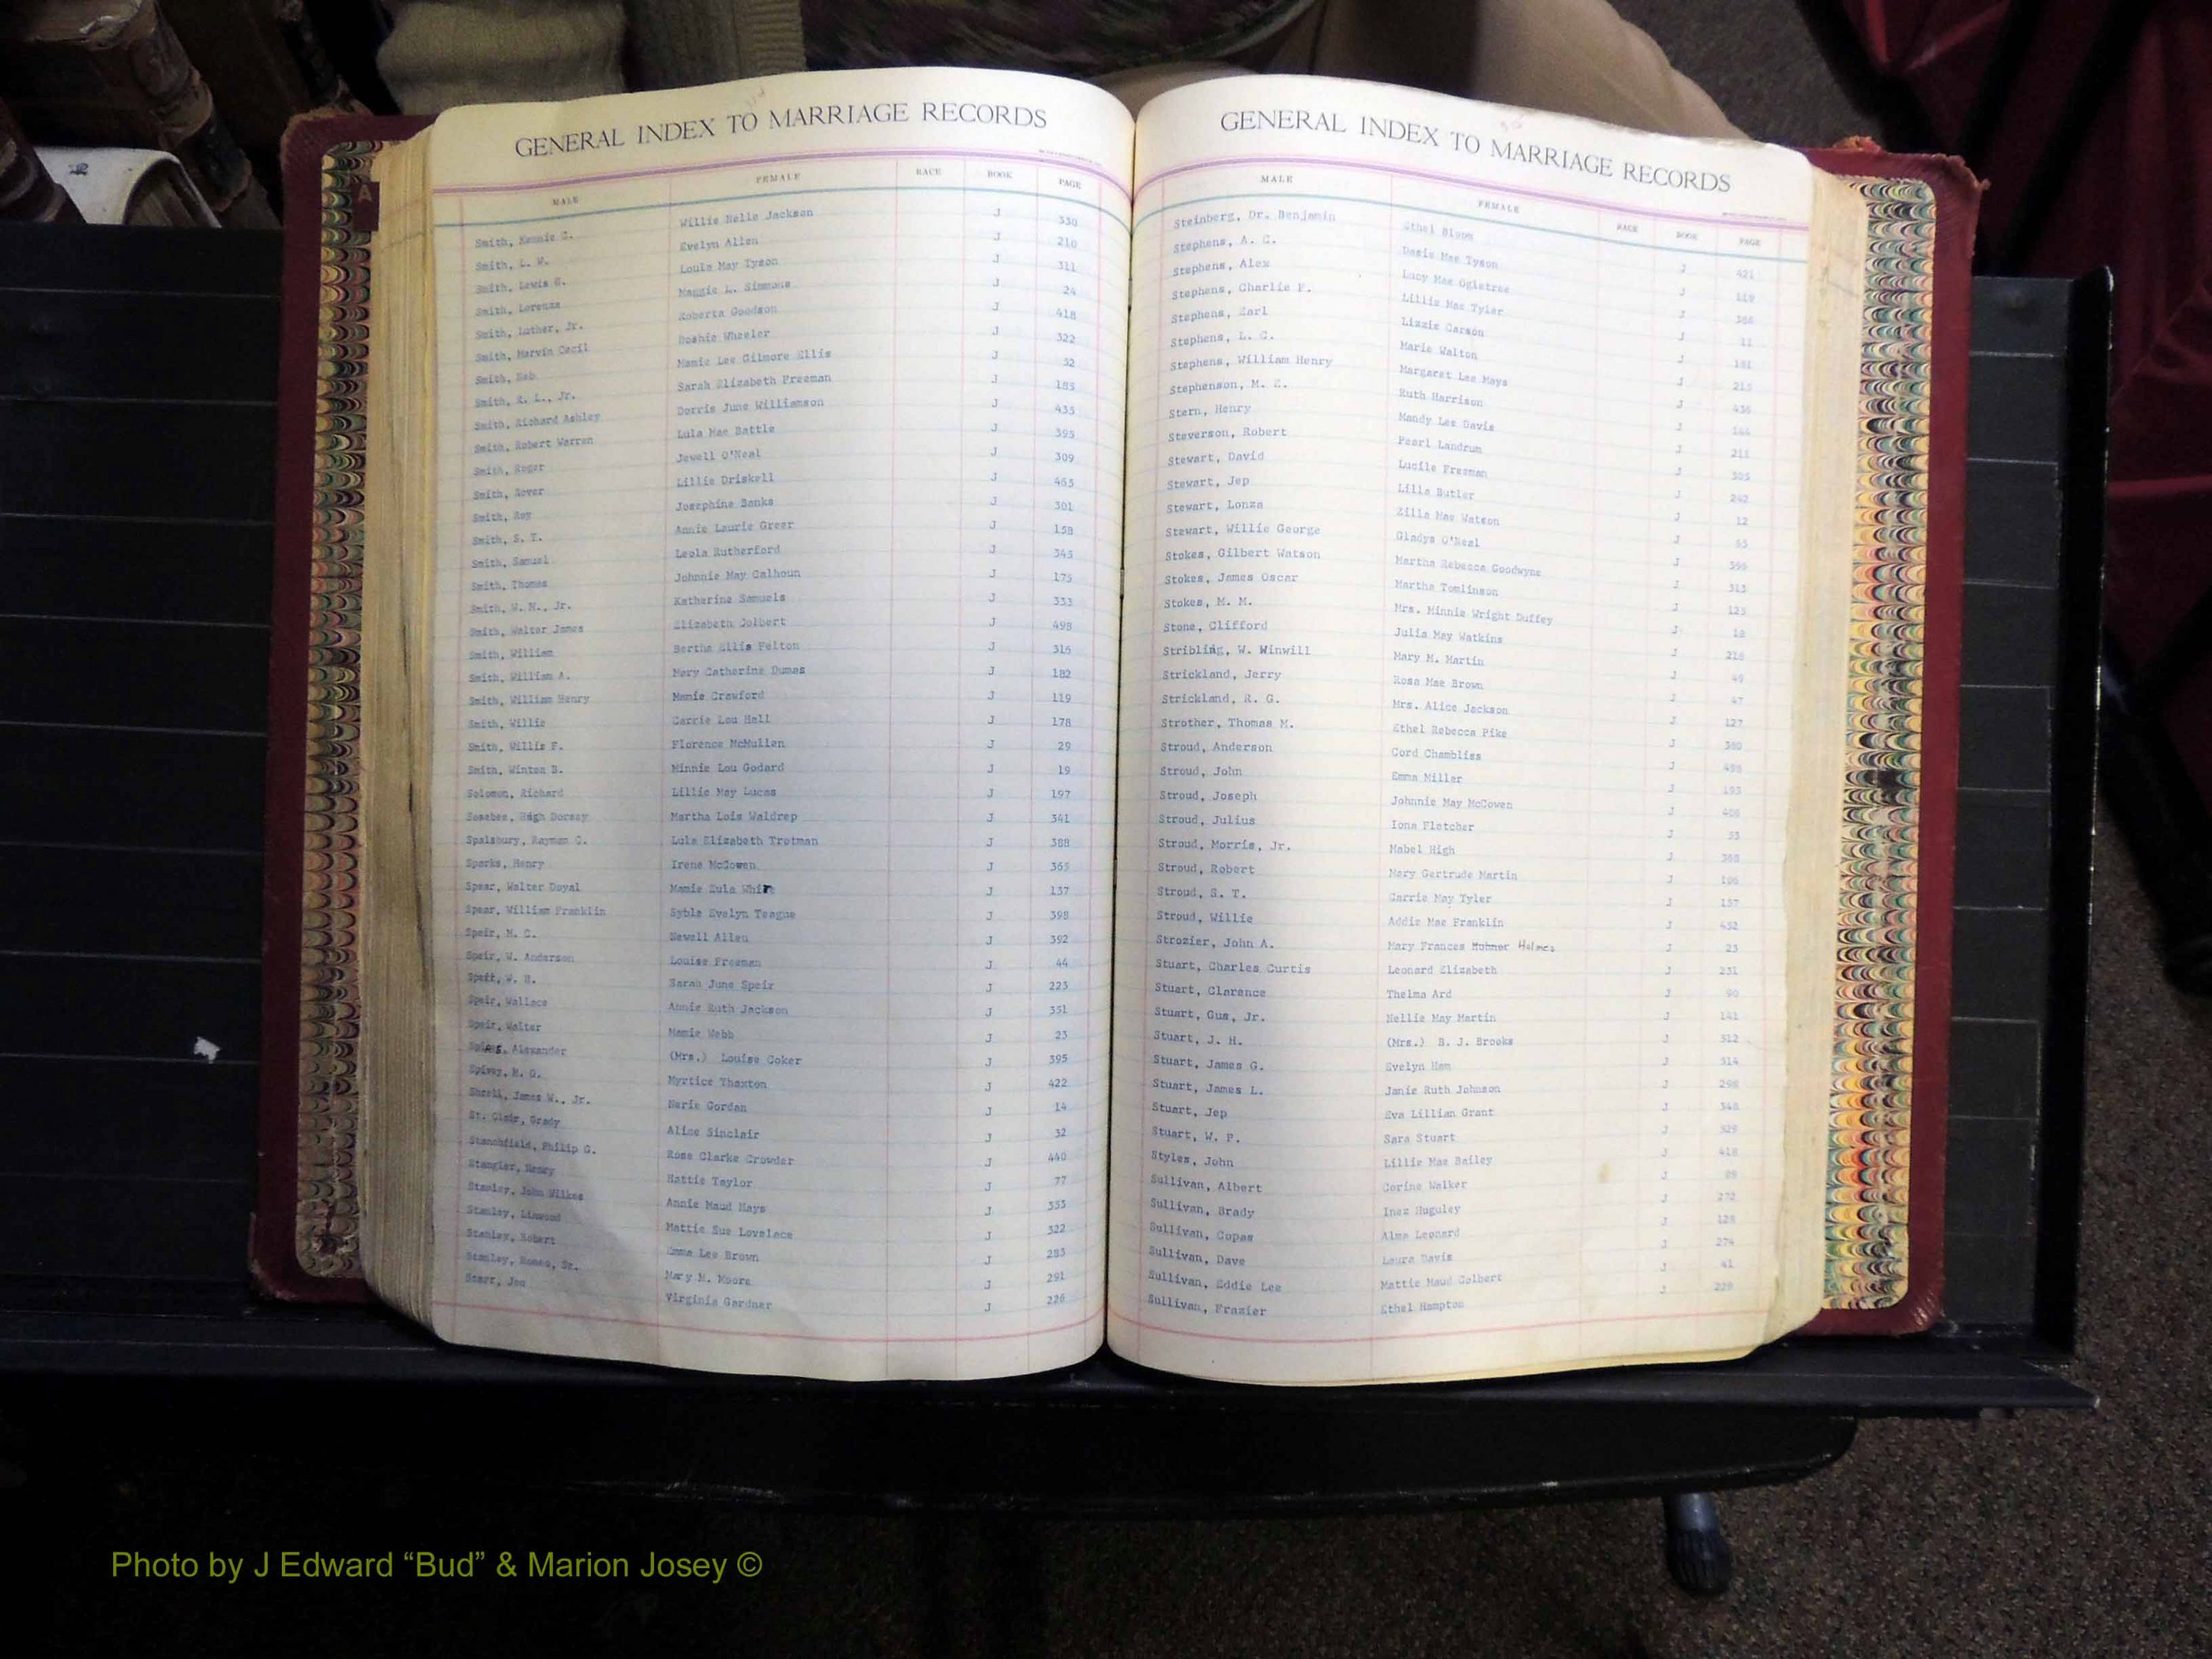 GENERAL INDEX TO MARRIAGE RECORDS
MALE FEMALE RACE BOOK PAGE
Smith, Kennie C. Willie Nelle Jackson J 330
Smith, L. W. Evelyn Allen J 210
Smith, Lewis G. Loula May Tyson J 311
Smith, Lorenza Maggie L. Simmons J 24
Smith, Luther, Jr. Roberta Goodson J 418
Smith, Marvin Cecil Roshie Wheeler J 322
Smith, Neb Mamie Lee Gilmore Ellis J 52
Smith, R. L., Jr. Sarah Elizabeth Freeman J 185
Smith, Richard Ashley Dorris June Williamson J 435
Smith, Robert Warren Lula Mae Battle J 395
Smith, Roger Jewell O'Neal J 309
Smith, Rover Lillie Driskell J 465
Smith, Roy Josephine Banks J 301
Smith, S. T. Annie Laurie Greer J 158
Smith, Samuel Leola Rutherford J 345
Smith, Thomas Johnnie May Calhoun J 175
Smith, W. M., Jr. Katherine Samuels J 333
Smith, Walter James Elizabeth Colbert J 498
Smith, William Bertha Ellis Felton J 316
Smith, William A. Mary Catherine Dumas J 182
Smith, William Henry Mamie Crawford J 119
Smith, Willie Carrie Lou Hall J 178
Smith, Willis F. Florence McMullen J 29
Smith, Winton B. Minnie Lou Godard J 19
Solomon, Richard Lillie May Lucas J 197
Sosebee, Hugh Dorsey Martha Lois Waldrep J 341
Spalsbury, Rayman C. Lula Elizabeth Trotman J 388
Sparks, Henry Irene McCowen J 365
Spear, Walter Doyal Mamie Eula White J 137
Spear, William Franklin Syble Evelyn Teague J 398
Speir, M. C. Newell Allen J 392
Speir, W. Anderson Louise Freeman J 44
Speir, W. H. Sarah June Speir J 223
Speir, Wallace Annie Ruth Jackson J 351
Speir, Walter Mamie Webb J 23
Alexander (Mrs.) Louise Coker J 395
Spivey, M. G. Myrtice Thaxton J 422
James W., Jr. Marie Gordan J 14
St. Clair, Grady Alice Sinclair J 32
Stanchfield, Philip G. Rose Clarke Crowder J 440
Stangler, Henry Hattie Taylor J 77
Stanley, John Wilkes Annie Maud Hays J 333
Stanley, Linwood Mattie Sue Lovelace J 322
Stanley, Robert Emma Lee Brown J 283
Stanley, Romeo, Sr. Mary M. Moore J 291
Starr, Jon Virginia Gardner J 226
GENERAL INDEX TO MARRIAGE RECORDS
MALE FEMALE RACE BOOK PAGE
Steinberg, Dr. Benjamin Ethel Bloom J 421
Stephens, A. C. Dasie Mae Tyson J 119
Stephens, Alex Lucy Mae Ogletree J 386
Stephens, Charlie F. Lillie Mae Tyler J 11
Stephens, Earl Lizzie Carson J 181
Stephens, L. C. Marie Walton J 215
Stephens, William Henry Margaret Lee Mays J 436
Stephenson, M. E. Ruth Harrison J 144
Stern, Henry Mandy Lee Davis J 211
Steverson, Robert Pearl Landrum J 305
Stewart, David Lucile Freeman J 242
Stewart, Jep Lilla Butler J 12
Stewart, Lonza Zilla Mae Watson J 65
Stewart, Willie George Gladys O'Neal J 398
Stokes, Gilbert Watson Martha Rebecca Goodwyne J 313
Stokes, James Oscar Martha Tomlinson J 123
Stokes, M. M. Mrs. Minnie Wright Duffey J 18
Stone, Clifford Julia May Watkins J 218
Stribling, W. Winwill Mary M. Martin J 49
Strickland, Jerry Rosa Mae Brown J 47
Strickland, R. G. Mrs. Alice Jackson J 127
Strother, Thomas M. Ethel Rebecca Pike J 380
Stroud, Anderson Cord Chambliss J 498
Stroud, John Emma Miller J 193
Stroud, Joseph Johnnie May McCowen J 408
Stroud, Julius Iona Fletcher J 53
Stroud, Morris, Jr. Mabel High J 368
Stroud, Robert Mary Gertrude Martin J 106
Stroud, S. T. Carrie May Tyler J 157
Stroud, Willie Addie Mae Franklin J 432
Strozier, John A. Mary Frances Hohner Holmes J 23
Stuart, Charles Curtis Leonard Elizabeth J 231
Stuart, Clarence Thelma Ard J 90
Stuart, Gus, Jr. Nellie May Martin J 141
Stuart, J. H. (Mrs.) B. J. Brooks J 312
Stuart, James G. Evelyn Ham J 314
Stuart, James L. Janie Ruth Johnson J 298
Stuart, Jep Eva Lillian Grant J 348
Stuart, W. P. Sara Stuart J 329
Styles, John Lillie Mae Bailey J 418
Sullivan, Albert Corine Walker J 89
Sullivan, Brady Inez Huguley J 272
Sullivan, Copas Alma Leonard J 128
Sullivan, Dave Laura Davis J 274
Sullivan, Eddie Lee Mattie Maud Colbert J 41
Sullivan, Frazier Ethel Hampton J 229
Photo by J Edward “Bud” & Marion Josey ©